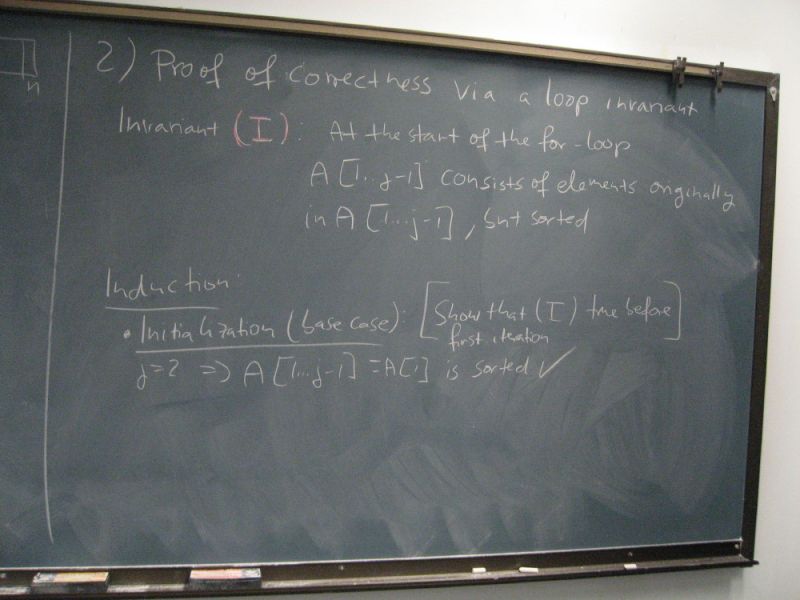 n
2) Proof of correctness via a loop invariant
Invariant (I): At the start of the for-loop
A[1...j-1] consists of elements originally
in A[1...j-1], but sorted
Induction:
• Initialization (base case): [Show that (I) true before
first iteration]
j=2 ⇒ A[1...j-1] = A[1] is sorted ✓